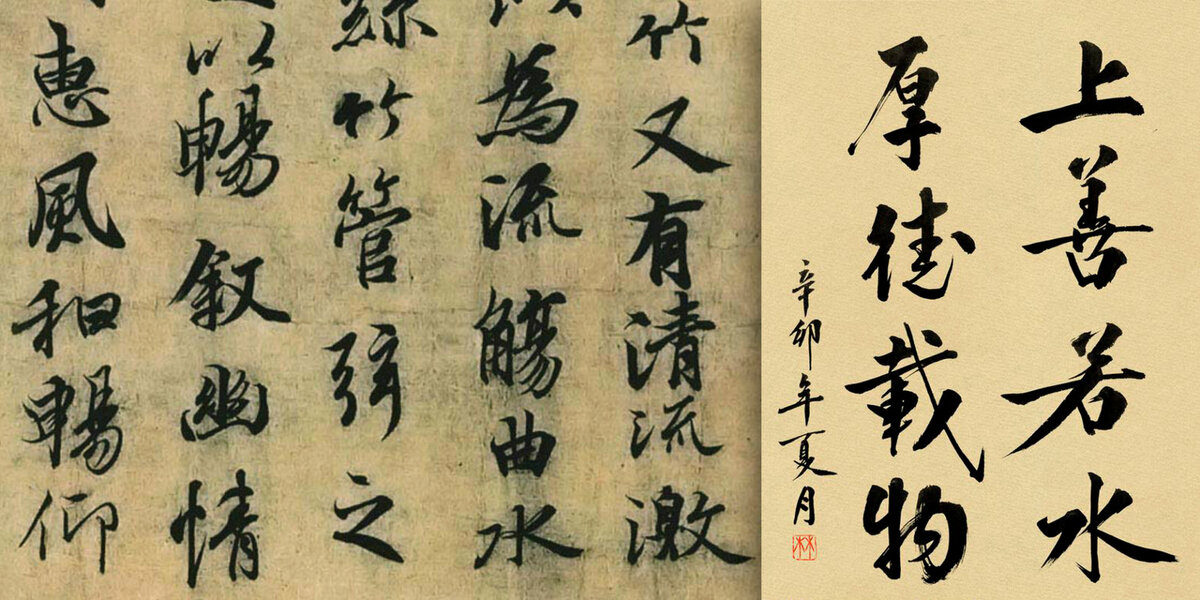 上善若水
厚德載物
辛卯年夏月
林
竹又有清流激
為流觴曲水
絲竹管弦之
以暢叙幽情
惠風和暢仰